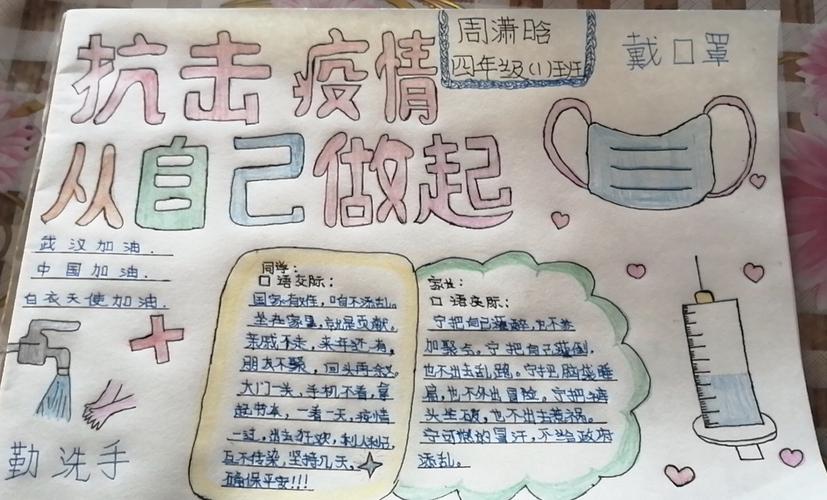 抗击疫情
周潇晗
四年级(1)班
戴口罩
从自己做起
武汉加油.
中国加油.
白衣天使加油.
勤洗手
同学:
口语交际:
国家有难,咱不添乱。
坐在家里,就是贡献,
亲戚不走,来年还有,
朋友不聚,回头再
大门一关,手机不看,拿
起书本,一看一天,疫情
一过,出去狂欢,利人利己,
互不传染,坚持几天,
确保平安!!!
家长:
口语交际:
宁把自己灌醉,也不参
加聚会。宁把自己灌倒,
也不出去乱跑。宁把脑袋睡
扁,也不外出冒险。宁把
头生硬,也不出去惹祸。
宁可憋的冒汗,不给政府
添乱。